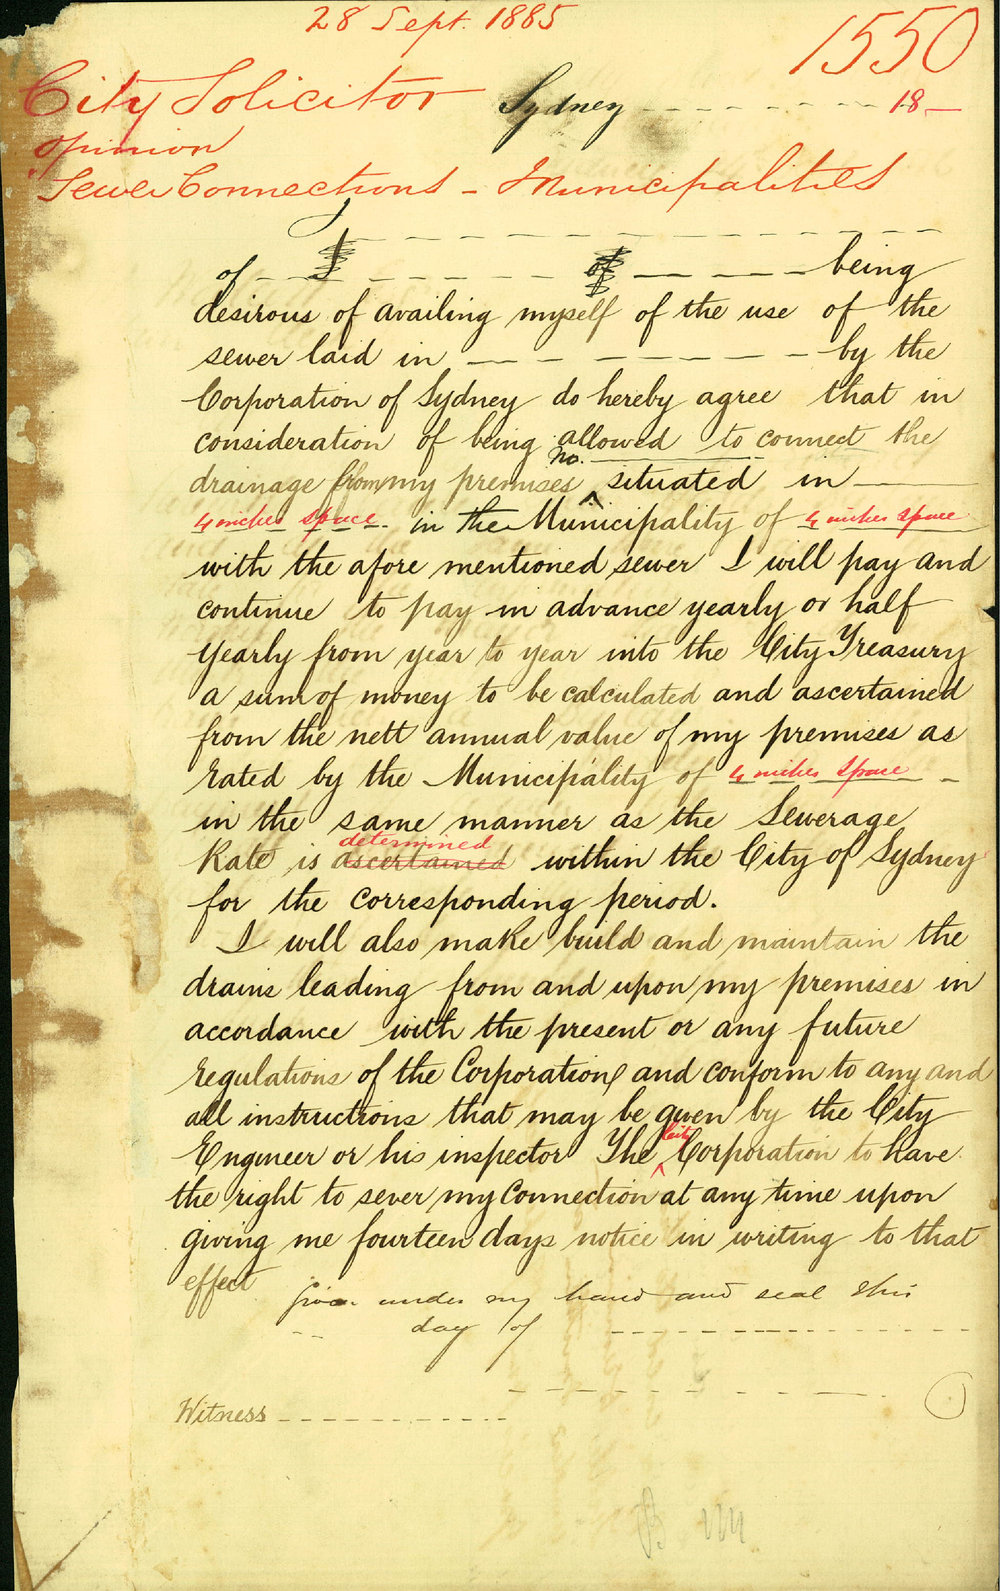 28 Sept. 1885
1550
City Solicitor
Sydney - - - - - - - - - 18 -
opinion
Sewer Connections - Municipalities
I - - - - - - - - - - - - - -
of - - - - - - - - - - - being
desirous of availing myself of the use of the
sewer laid in - - - - - - - - by the
Corporation of Sydney do hereby agree that in
consideration of being allowed to connect the
drainage from my premises no. situated in
4 inches space in the Municipality of 4 inches space
with the afore mentioned sewer I will pay and
continue to pay in advance yearly or half
yearly from year to year into the City Treasury
a sum of money to be calculated and ascertained
from the nett annual value of my premises as
rated by the Municipality of 4 inches space -
in the same manner as the Sewerage
Rate is ascertained determined within the City of Sydney
for the corresponding period.
I will also make build and maintain the
drains leading from and upon my premises in
accordance with the present or any future
regulations of the Corporation and conform to any and
all instructions that may be given by the City
Engineer or his inspector The City Corporation to have
the right to sever my connection at any time upon
giving me fourteen days notice in writing to that
effect Given under my hand and seal this
-- day of - - - - - - - - - - - -
Witness - - - - - - - - - - -